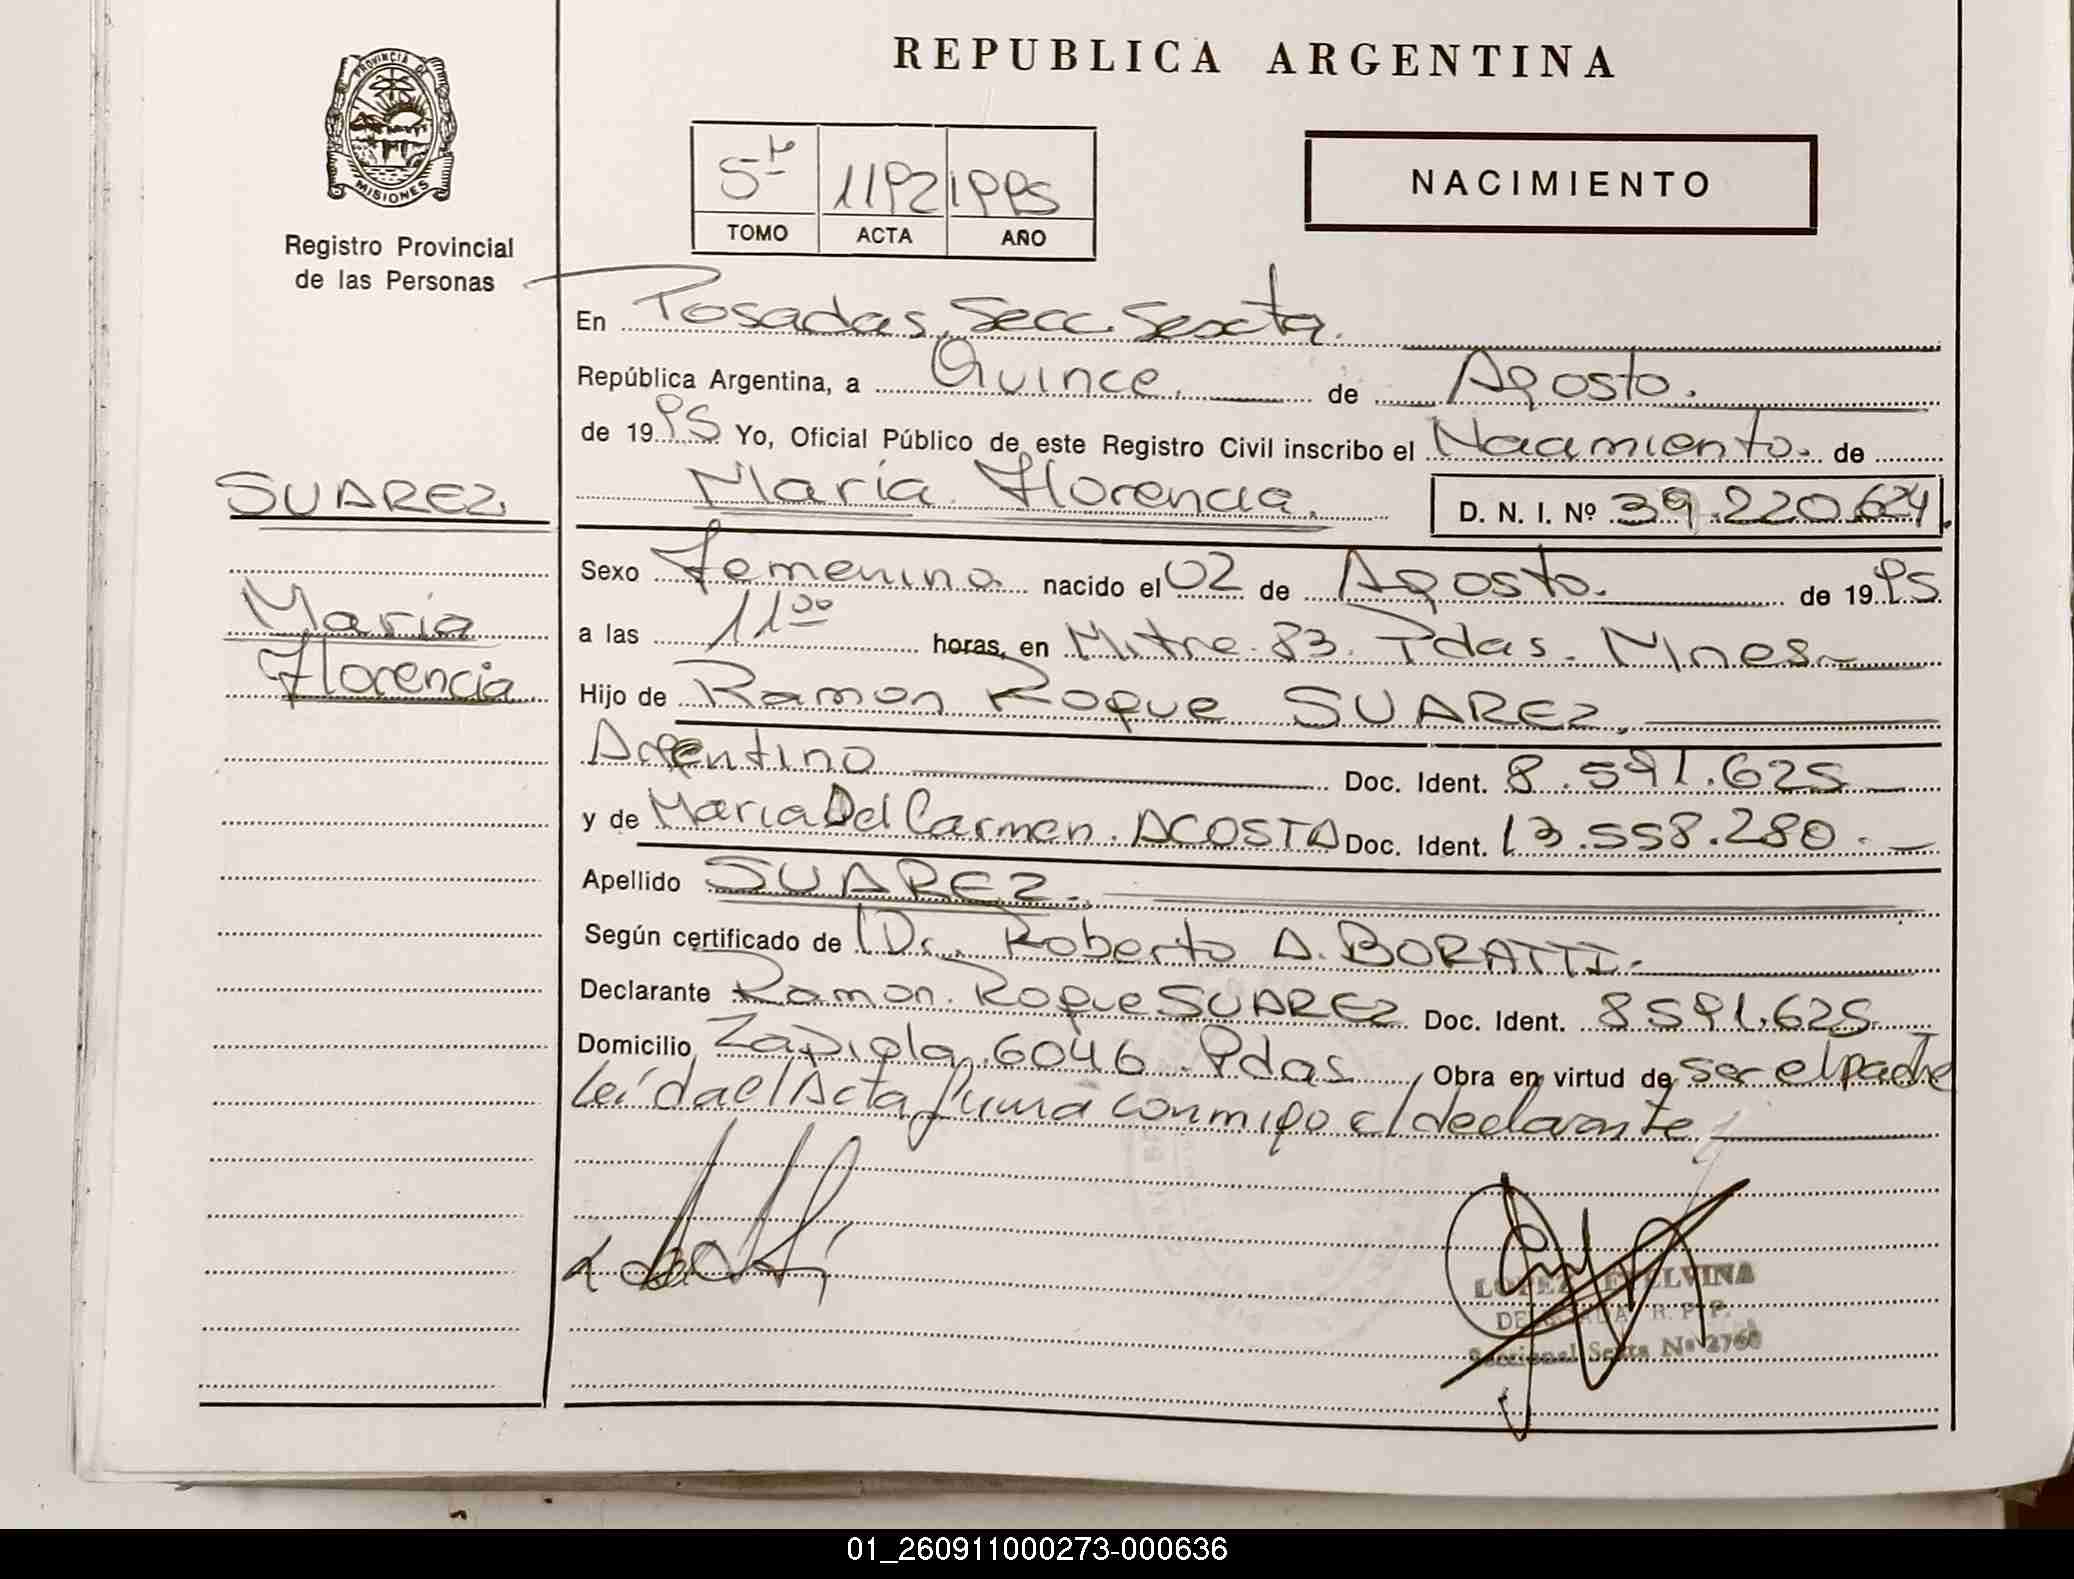 PROVINCIA DE
MISIONES
Registro Provincial
de las Personas
REPUBLICA ARGENTINA
5to 1192 1995
TOMO ACTA AÑO
NACIMIENTO
En Posadas, Secc. Sexta.
República Argentina, a Quince. de Agosto.
de 1995 Yo, Oficial Público de este Registro Civil inscribo el Nacimiento. de
María Florencia. D. N. I. Nº 39.220.624.
SUAREZ
María
Florencia
Sexo Femenino nacido el 02 de Agosto. de 1995
a las 11 00 horas, en Mitre. 83. Pdas. Mnes.
Hijo de Ramon Roque SUAREZ,
Argentino Doc. Ident. 8.591.625
y de Maria Del Carmen. ACOSTA Doc. Ident. 13.558.280.
Apellido SUAREZ.
Según certificado de Dr. Roberto A. BORATTI.
Declarante Ramon. Roque SUAREZ Doc. Ident. 8591.625
Domicilio Zapiola. 6046. Pdas Obra en virtud de ser el padre
Leída el Acta firma conmigo el declarante
LOPEZ ETELVINA
DELEGADA R. P. P.
Seccional Sexta Nº 2760
01_260911000273-000636